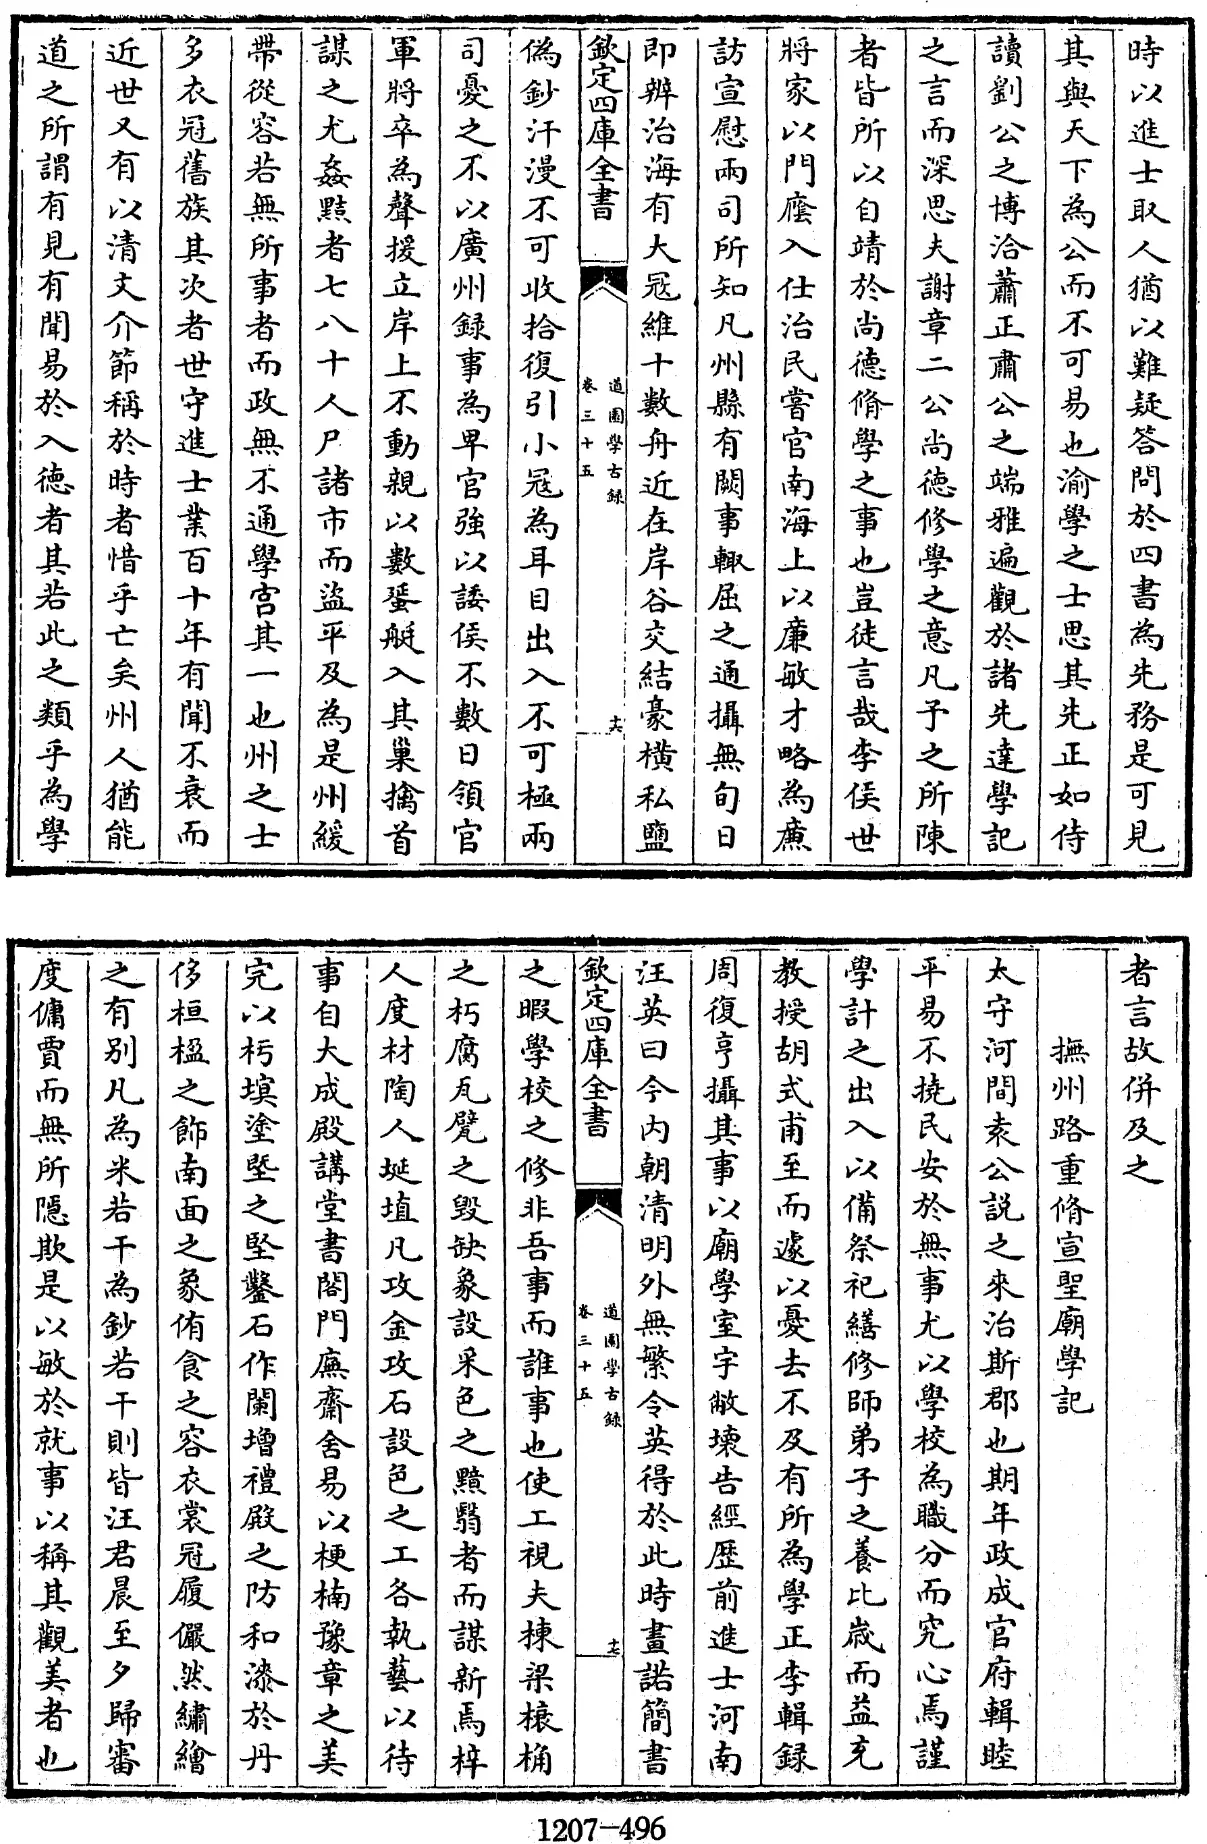 時以進士取人猶以難疑答問於四書為先務是可見
其與天下為公而不可易也渝學之士思其先正如侍
讀劉公之博洽蕭正肅公之端雅遍觀於諸先達學記
之言而深思夫謝章二公尚德修學之意凡予之所陳
者皆所以自靖於尚德脩學之事也豈徒言哉李侯世
將家以門廕入仕治民嘗官南海上以廉敏才略為廉
訪宣慰兩司所知凡州縣有闕事輙屈之通攝無旬日
即辨治海有大冦維十數舟近在岸谷交結豪橫私鹽
欽定四庫全書
道園學古録
卷三十五
十六
偽鈔汗漫不可收拾復引小冦為耳目出入不可極兩
司憂之不以廣州録事為卑官強以諉侯不數日領官
軍將卒為聲援立岸上不動親以數蜑艇入其巢擒首
謀之尤姦黠者七八十人尸諸市而盜平及為是州緩
帶從容若無所事者而政無不通學宫其一也州之士
多衣冠舊族其次者世守進士業百十年有聞不衰而
近世又有以清文介節稱於時者惜乎亡矣州人猶能
道之所謂有見有聞易於入德者其若此之類乎為學
者言故併及之
撫州路重脩宣聖廟學記
太守河間袁公説之來治斯郡也期年政成官府輯睦
平易不撓民安於無事尤以學校為職分而究心焉謹
學計之出入以備祭祀繕修師弟子之養比嵗而益充
教授胡式甫至而遽以憂去不及有所為學正李輯録
周復亨攝其事以廟學室宇敝壞告經歷前進士河南
汪英曰今内朝清明外無繁令英得於此時畫諾簡書
欽定四庫全書
道園學古録
卷三十五
十七
之暇學校之修非吾事而誰事也使工視夫棟梁榱桷
之朽腐瓦甓之毁缺象設采色之黮翳者而謀新焉梓
人度材陶人埏埴凡攻金攻石設色之工各執藝以待
事自大成殿講堂書閣門廡齋舍易以梗楠豫章之美
完以杇墁塗塈之堅鑿石作闌增禮殿之防和漆於丹
侈桓楹之飾南面之象侑食之容衣裳冠履儼然繡繪
之有别凡為米若干為鈔若干則皆汪君晨至夕歸審
度傭賈而無所隱欺是以敏於就事以稱其觀美者也
1207-496